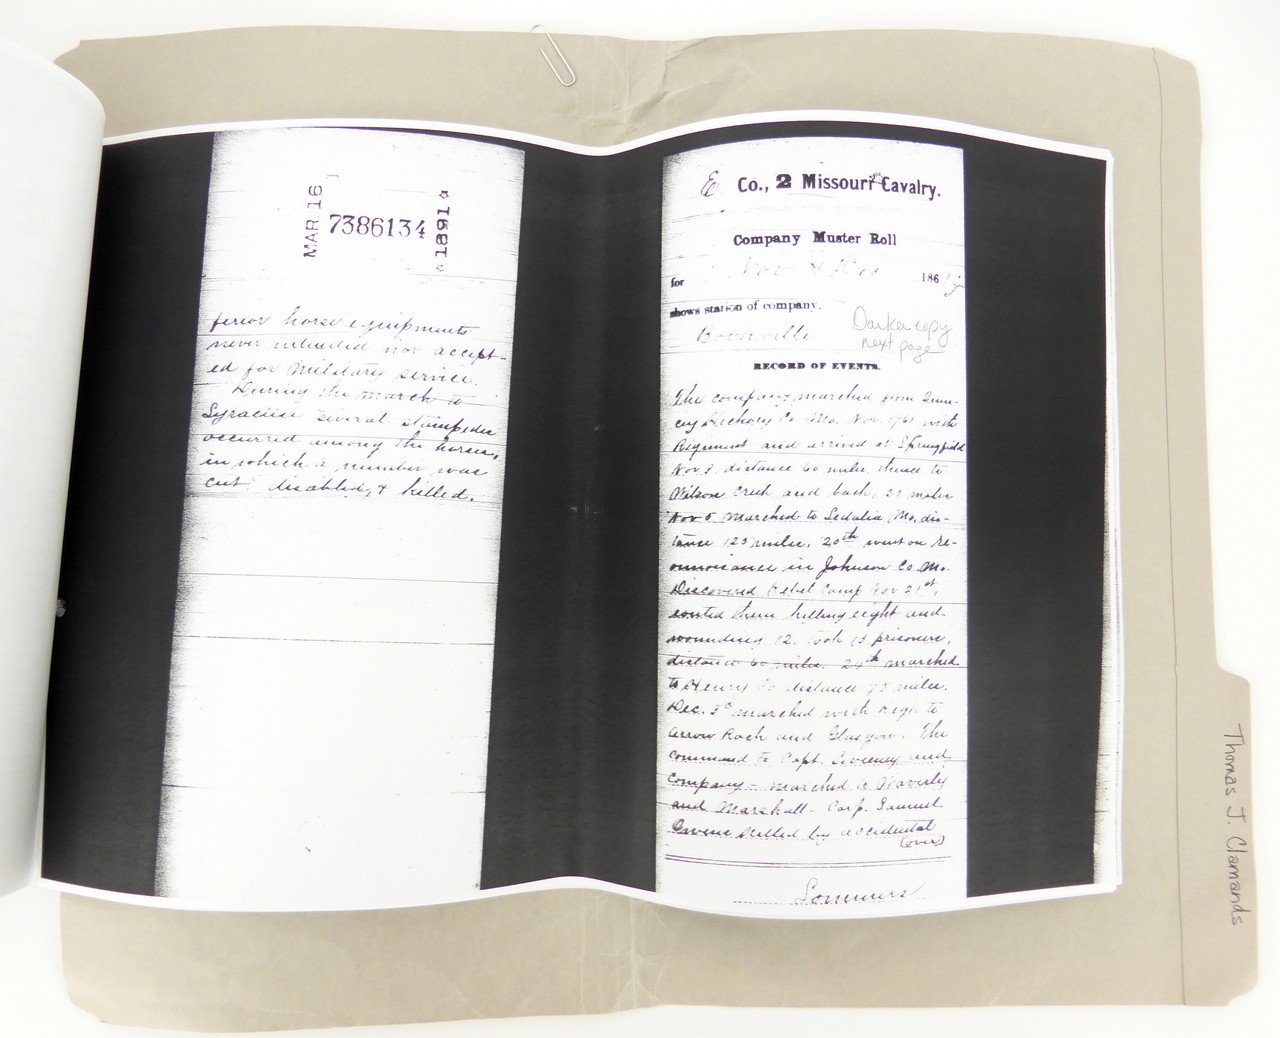 MAR 16
7386134
1891
ferior horse equipments
never intended nor accept-
ed for Military service.
During the march to
Syracuse several stampedes
occurred among the horses,
in which a number was
cut, disabled, & killed.
E Co., 2 Missouri Cavalry.
Company Muster Roll
for Nov & Dec 186
shows station of company.
Boonville
Darker copy
next page
RECORD OF EVENTS.
The company marched from
Co Mo. Nov. with
Regiment and arrived at Springfield
Nov 3, distance 60 miles, thence to
Wilson Creek and back, miles
Nov marched to Sedalia Mo, dis-
tance 125 miles. 20th went on re-
connoisance in Johnson Co Mo.
Discovered Rebel Camp Nov 21st,
routed them killing eight and
wounding 12. Took 13 prisoners,
distance 60 miles. 24th marched
to Henry Co distance miles.
Dec. 3d marched with Regt. to
Arrow Rock and Glasgow. The
command to Capt. and
company - marched to Waverly
and Marshall - Corp. Samuel
killed by accidental
(over)
Sommers
Thomas J. Clamands